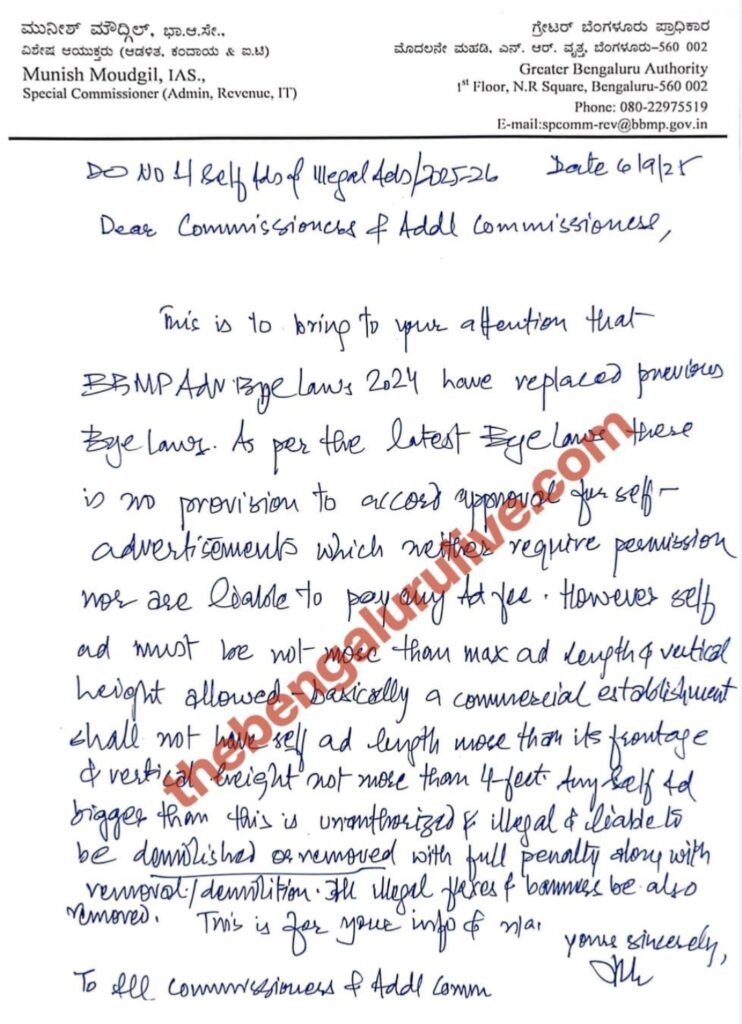 ಮುನೀಶ್ ಮೌದ್ಗಿಲ್, ಭಾ.ಆ.ಸೇ.,
ವಿಶೇಷ ಆಯುಕ್ತರು (ಆಡಳಿತ, ಕಂದಾಯ & ಐ.ಟಿ)
Munish Moudgil, IAS.,
Special Commissioner (Admin, Revenue, IT)
ಗ್ರೇಟರ್ ಬೆಂಗಳೂರು ಪ್ರಾಧಿಕಾರ
ಮೊದಲನೇ ಮಹಡಿ, ಎನ್. ಆರ್. ವೃತ್ತ, ಬೆಂಗಳೂರು-560 002
Greater Bengaluru Authority
1st Floor, N.R Square, Bengaluru-560 002
Phone: 080-22975519
E-mail:spcomm-rev@bbmp.gov.in
DO No 1/ Self Ads & Illegal Ads/2025-26 Date 6/9/25
Dear Commissioners & Addl Commissioners,
This is to bring to your attention that
BBMP Adv Bye Laws 2024 have replaced previous
Bye Laws. As per the latest Bye Laws there
is no provision to accord approval for self-
advertisements which neither require permission
nor are liable to pay any Ad fee. However self
ad must be not more than max ad length & vertical
height allowed - basically a commercial establishment
shall not have self ad length more than its frontage
& vertical height not more than 4-feet. Any self Ad
bigger than this is unauthorized & illegal & liable to
be demolished or removed with full penalty along with
removal/demolition. All illegal flexes & banners be also
removed. This is for your info & n/a.
yours sincerely,
To All Commissioners & Addl Comm
thebengalurulive.com